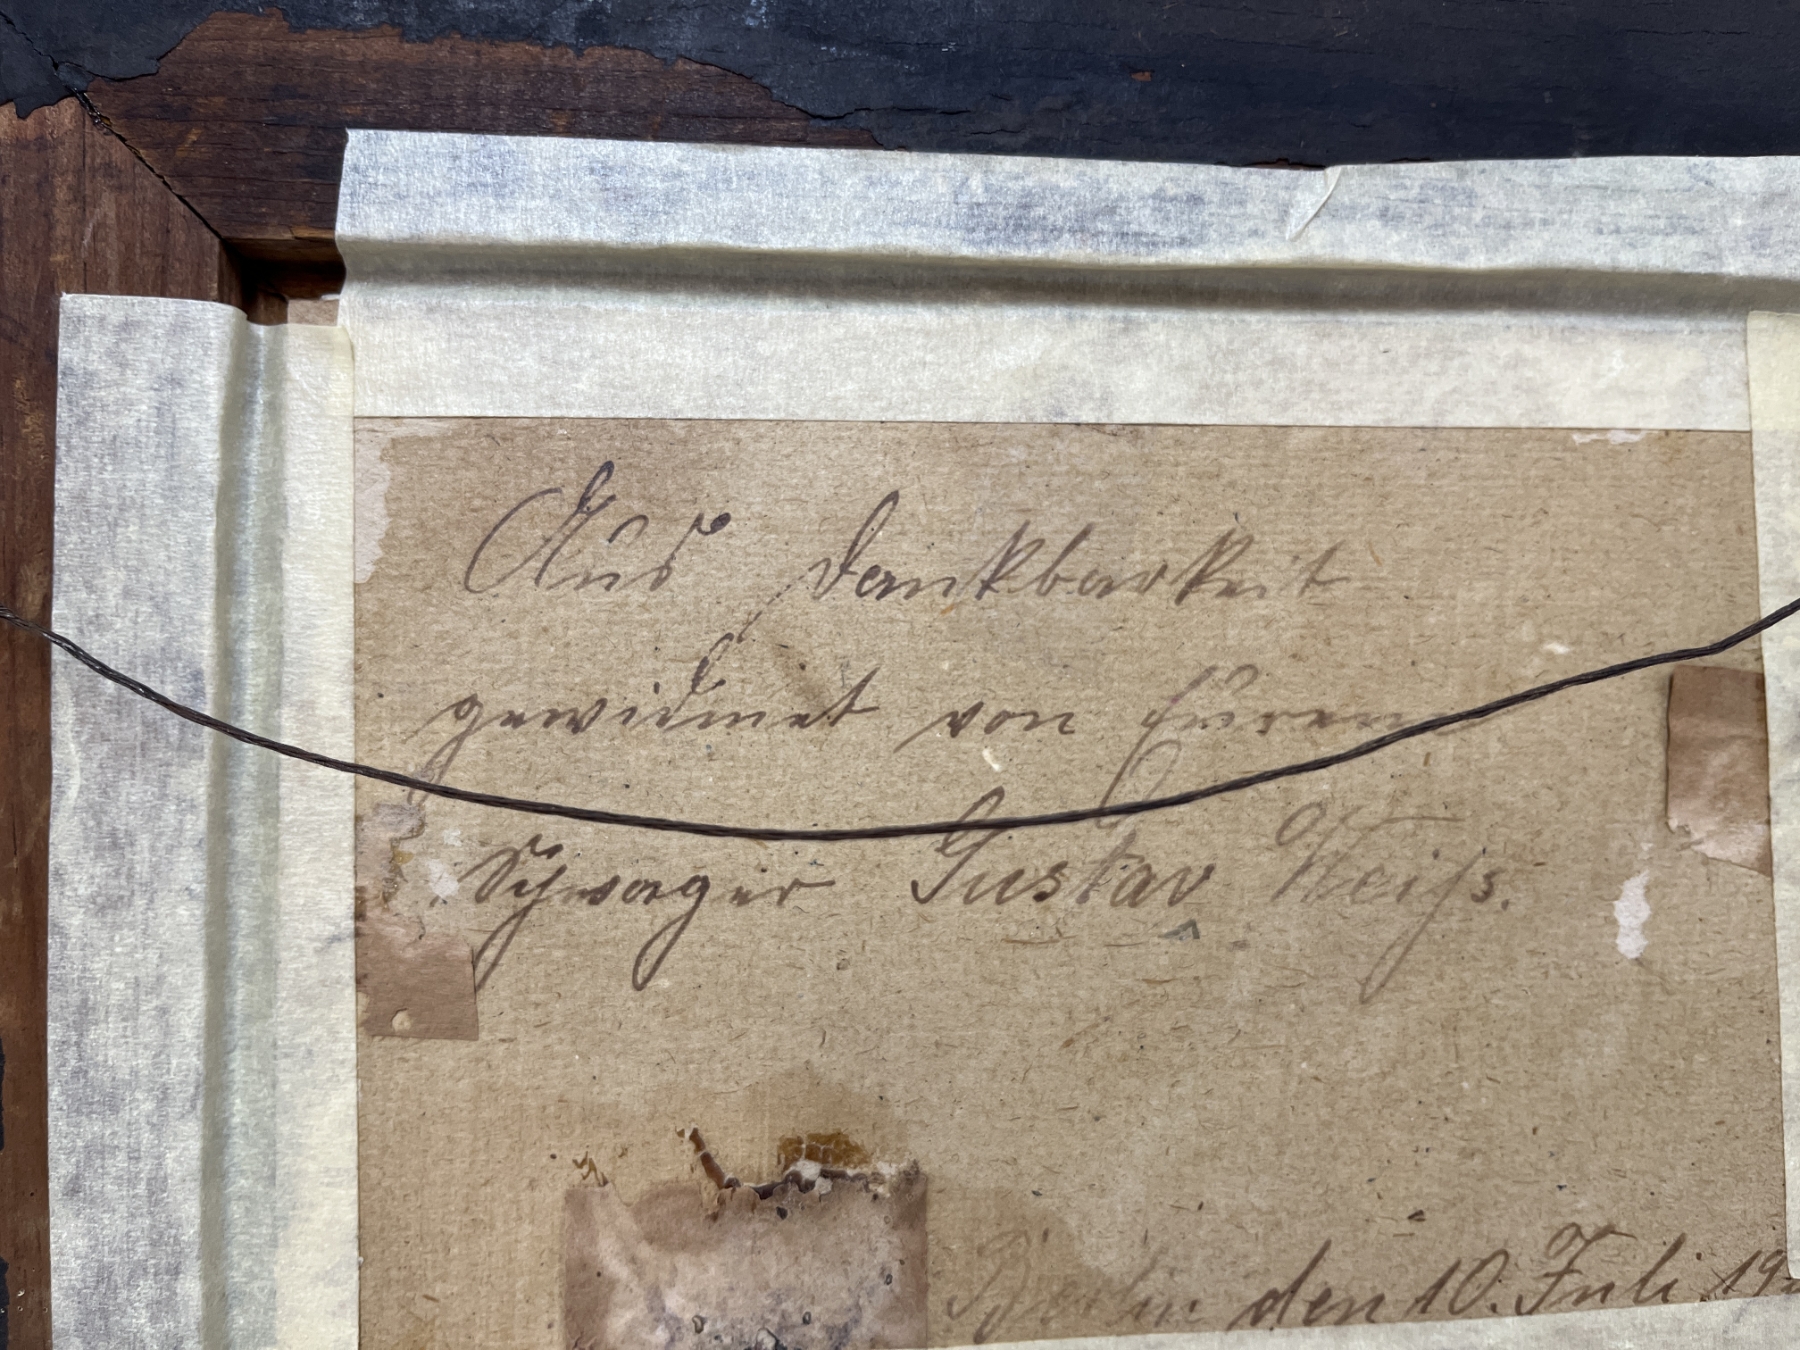 Aus Dankbarkeit
gewidmet von Eurem
Schwager Gustav Weiß.
Berlin den 10. Juli 19